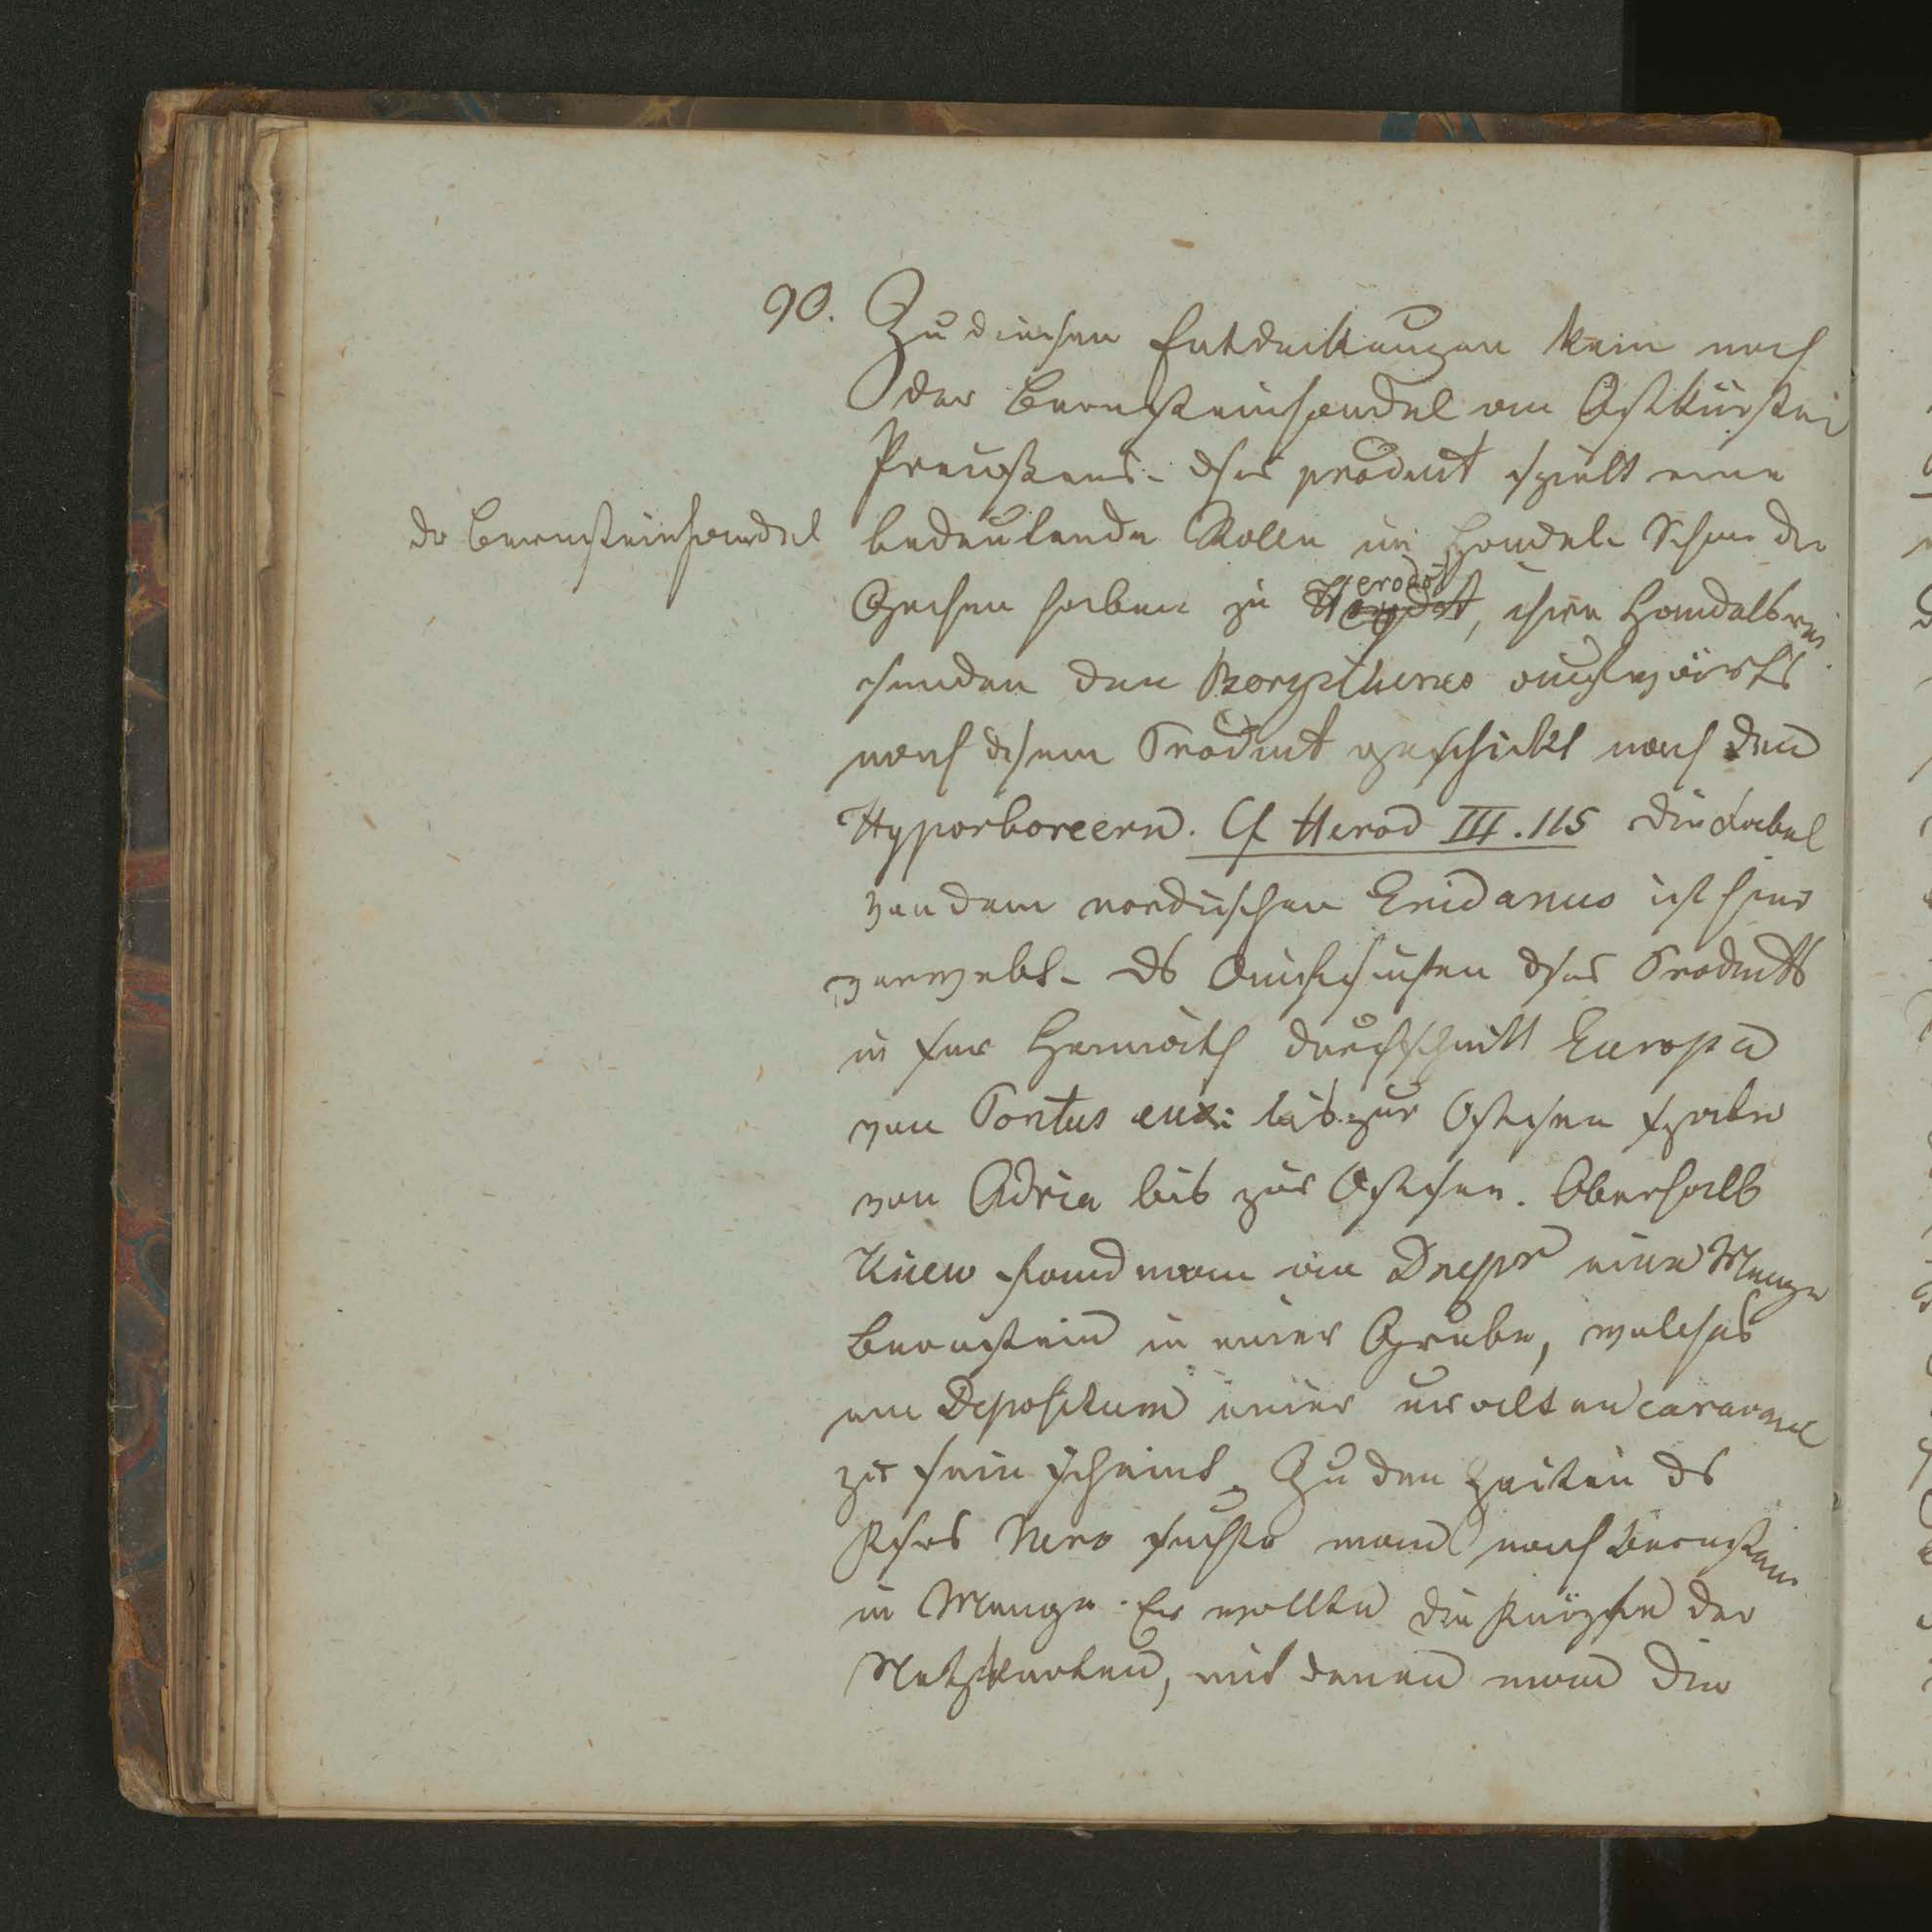 90. Zu diesen Entdeckungen kam noch
der Bernsteinhandel an Ostküsten
Preußens. dses product spielt eine
dr Bernsteinhandel
bedeutende Rolle im Handel. Schon die
Grchen haben zu Herodot, ihre Handelsrei
senden den Borysthenes aufwärts
nach dsem Product geschickt nach den
Hyporboreern. Cf Herod III.115 die Fabel
von dem nordischen Eridanus ist hier
verwebt. ds Aufsuchen dses Products
in der durchschnitt Europa
vom Pontus eux: bis zur Ostsee später
von Adria bis zur Ostsee. Oberhalb
Kiew fand man am Dnepr eine Menge
Bernstein in einer Grube, welches
ein Depositum einer uralten caravane
zu sein scheint. Zu den Zeiten ds
Kses Nero suchte man nach Bernstein
in Menge. Er wollte die Knöpfe der
Netz, mit denen man die